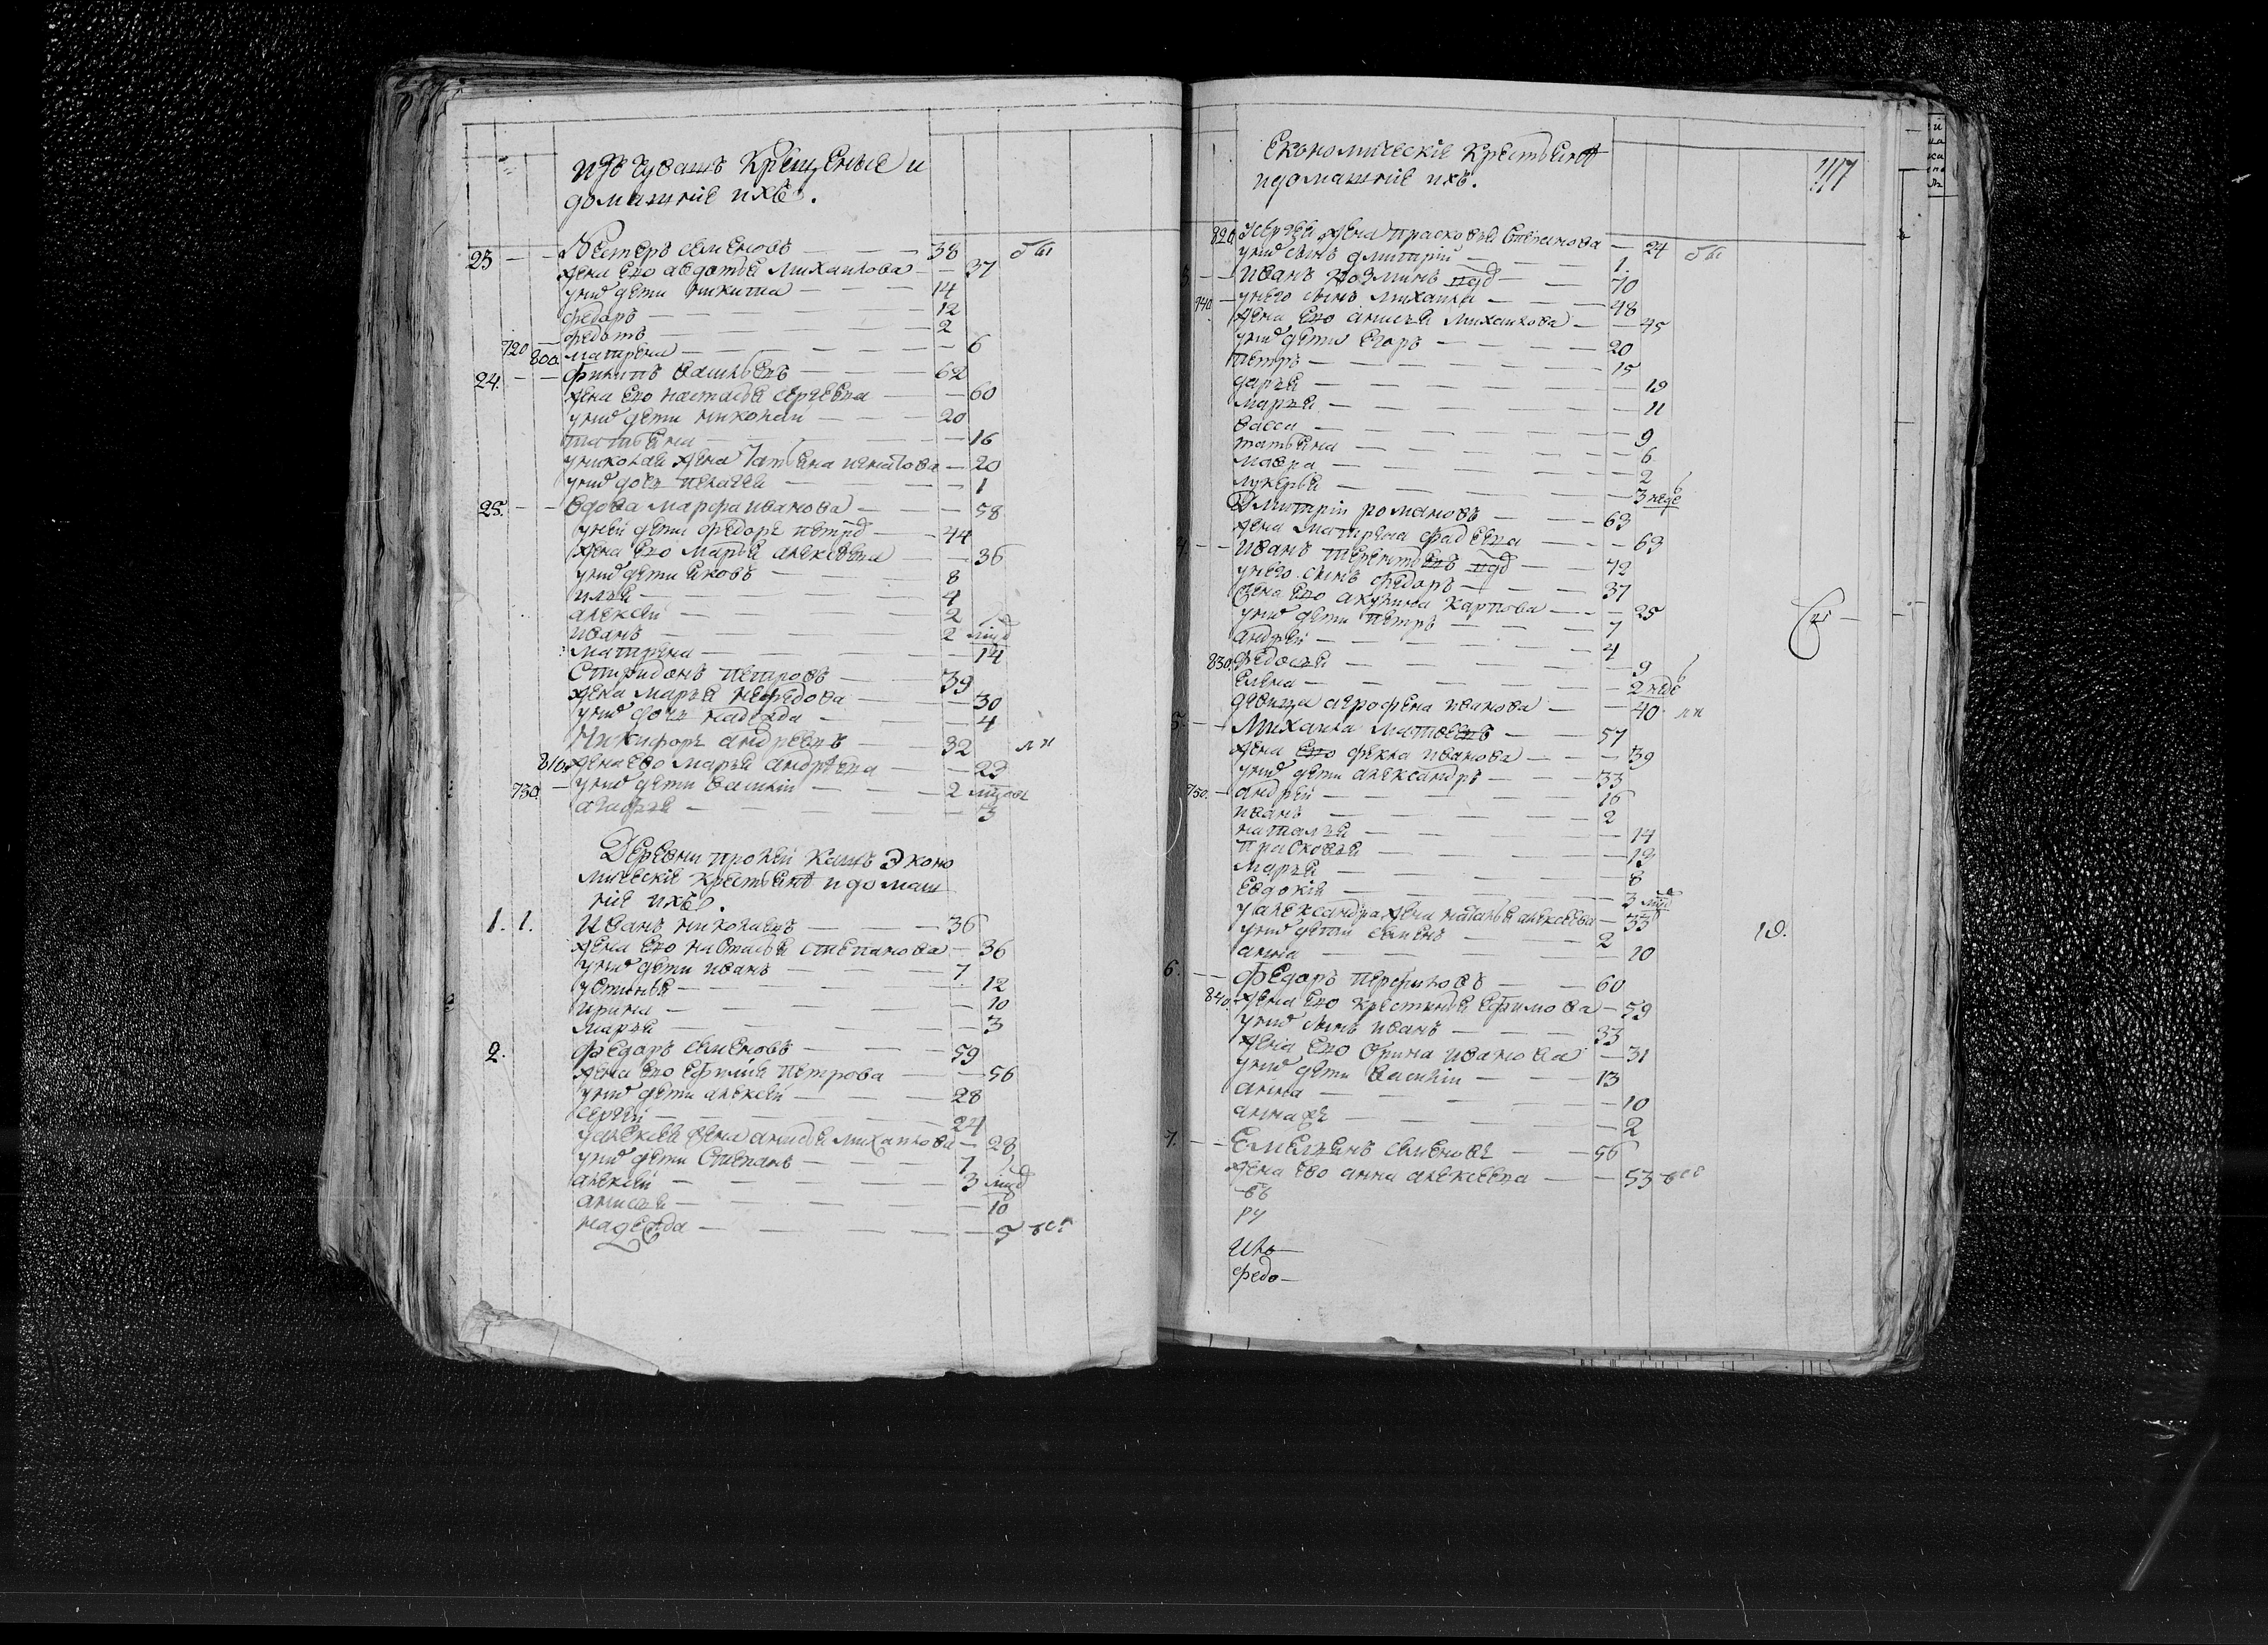 изъ чувашъ крещеные и
домашніе ихъ.
23 — — Нестеръ семеновъ — — 38 бы
жена ево авдотья михаилова — — 37
унихъ дети никита — — 14
федоръ — — 12
федотъ — — 2
720 — 800 матрена — — 6
24. — — филипъ васильевъ — — 62
жена ево настасья сергеева — — 60
унихъ дети николай — — 20
татьяна — — 16
униколая жена татьяна игнатова — 20
унихъ дочь пелагея — — 1
25. — — вдова марфа иванова — — 58
уней дети федоръ петровъ — — 44
жена ево марья алексеева — — 36
унихъ дети яковъ — — 8
илья — — 4
алексей — — 2
иванъ — — 2 мцд
матрена — — 14
Спиридонъ петровъ — — 39
жена марья нефедова — — 30
унихъ дочь надежда — — 4
Никифоръ андреевъ — — 32 лн
810 жена ево марья андреева — — 23
730. — унихъ дети василій — — 2 мцов
агафья — — 3
Деревни пролей кашъ Эконо
мическіе крестьяня идомаш
ніе ихъ.
1. 1. Иванъ николаевъ — — 36
жена ево настасья степанова — 36
унихъ дети иванъ — — 7
устинья — — 12
ирина — — 10
марья — — 3
2. федоръ семеновъ — — 59
жена ево ефимія петрова — — 56
унихъ дети алексей — — 28
сергей — — 24
уалексея жена анисья михаилова — 28
унихъ дети степанъ — — 7
алексей — — 3 мцд
анисья — — 10
надежда — — 5
Економическіе крестьяня
идомашніе ихъ.
820. усергея жена прасковья степанова — 24 бы
унихъ сынъ дмитрій — — 1
3. — — Иванъ козминъ вдв — — 70
740. — унего сынъ михаила — — 48
жена ево анисья михаилова — — 45
унихъ дети егоръ — — 20
петръ — — 15
дарья — — 19
марья — — 11
васса — — 9
татьяна — — 6
мавра — — 2
лукерья — — 3 неде
Дмитрій романовъ — — 63
жена матрена фадеева — — 63
4. — — Иванъ терентьевъ вдв — — 72
унего сынъ федоръ — — 37
жена ево акулина карпова — — 25
унихъ дети петръ — — 7
андрей — — 4
830. федосья — — 9
елена — — 2 неде
девица аграфена иванова — — 40 лн
5. — — Михаила матвеевъ — — 57
жена ево фекла иванова — — 39
унихъ дети александръ — — 33
750. — андрей — — 16
иванъ — — 2
наталья — — 14
прасковья — — 12
марья — — 8
евдокія — — 3 мцд
уалександра жена наталья алексеева — 33
унихъ дети семенъ — — 2 19.
анна — — 10
6. — — федоръ перфиловъ — — 60
840. жена ево крестинья ефимова — 59
унихъ сынъ иванъ — — 33
жена ево орина иванова — 31
унихъ дети василій — — 13
анна — — 10
анна же — — 2
7. — — Емельянъ семеновъ — — 56
жена ево анна алексеева — — 53
ру
Ило—
федо—